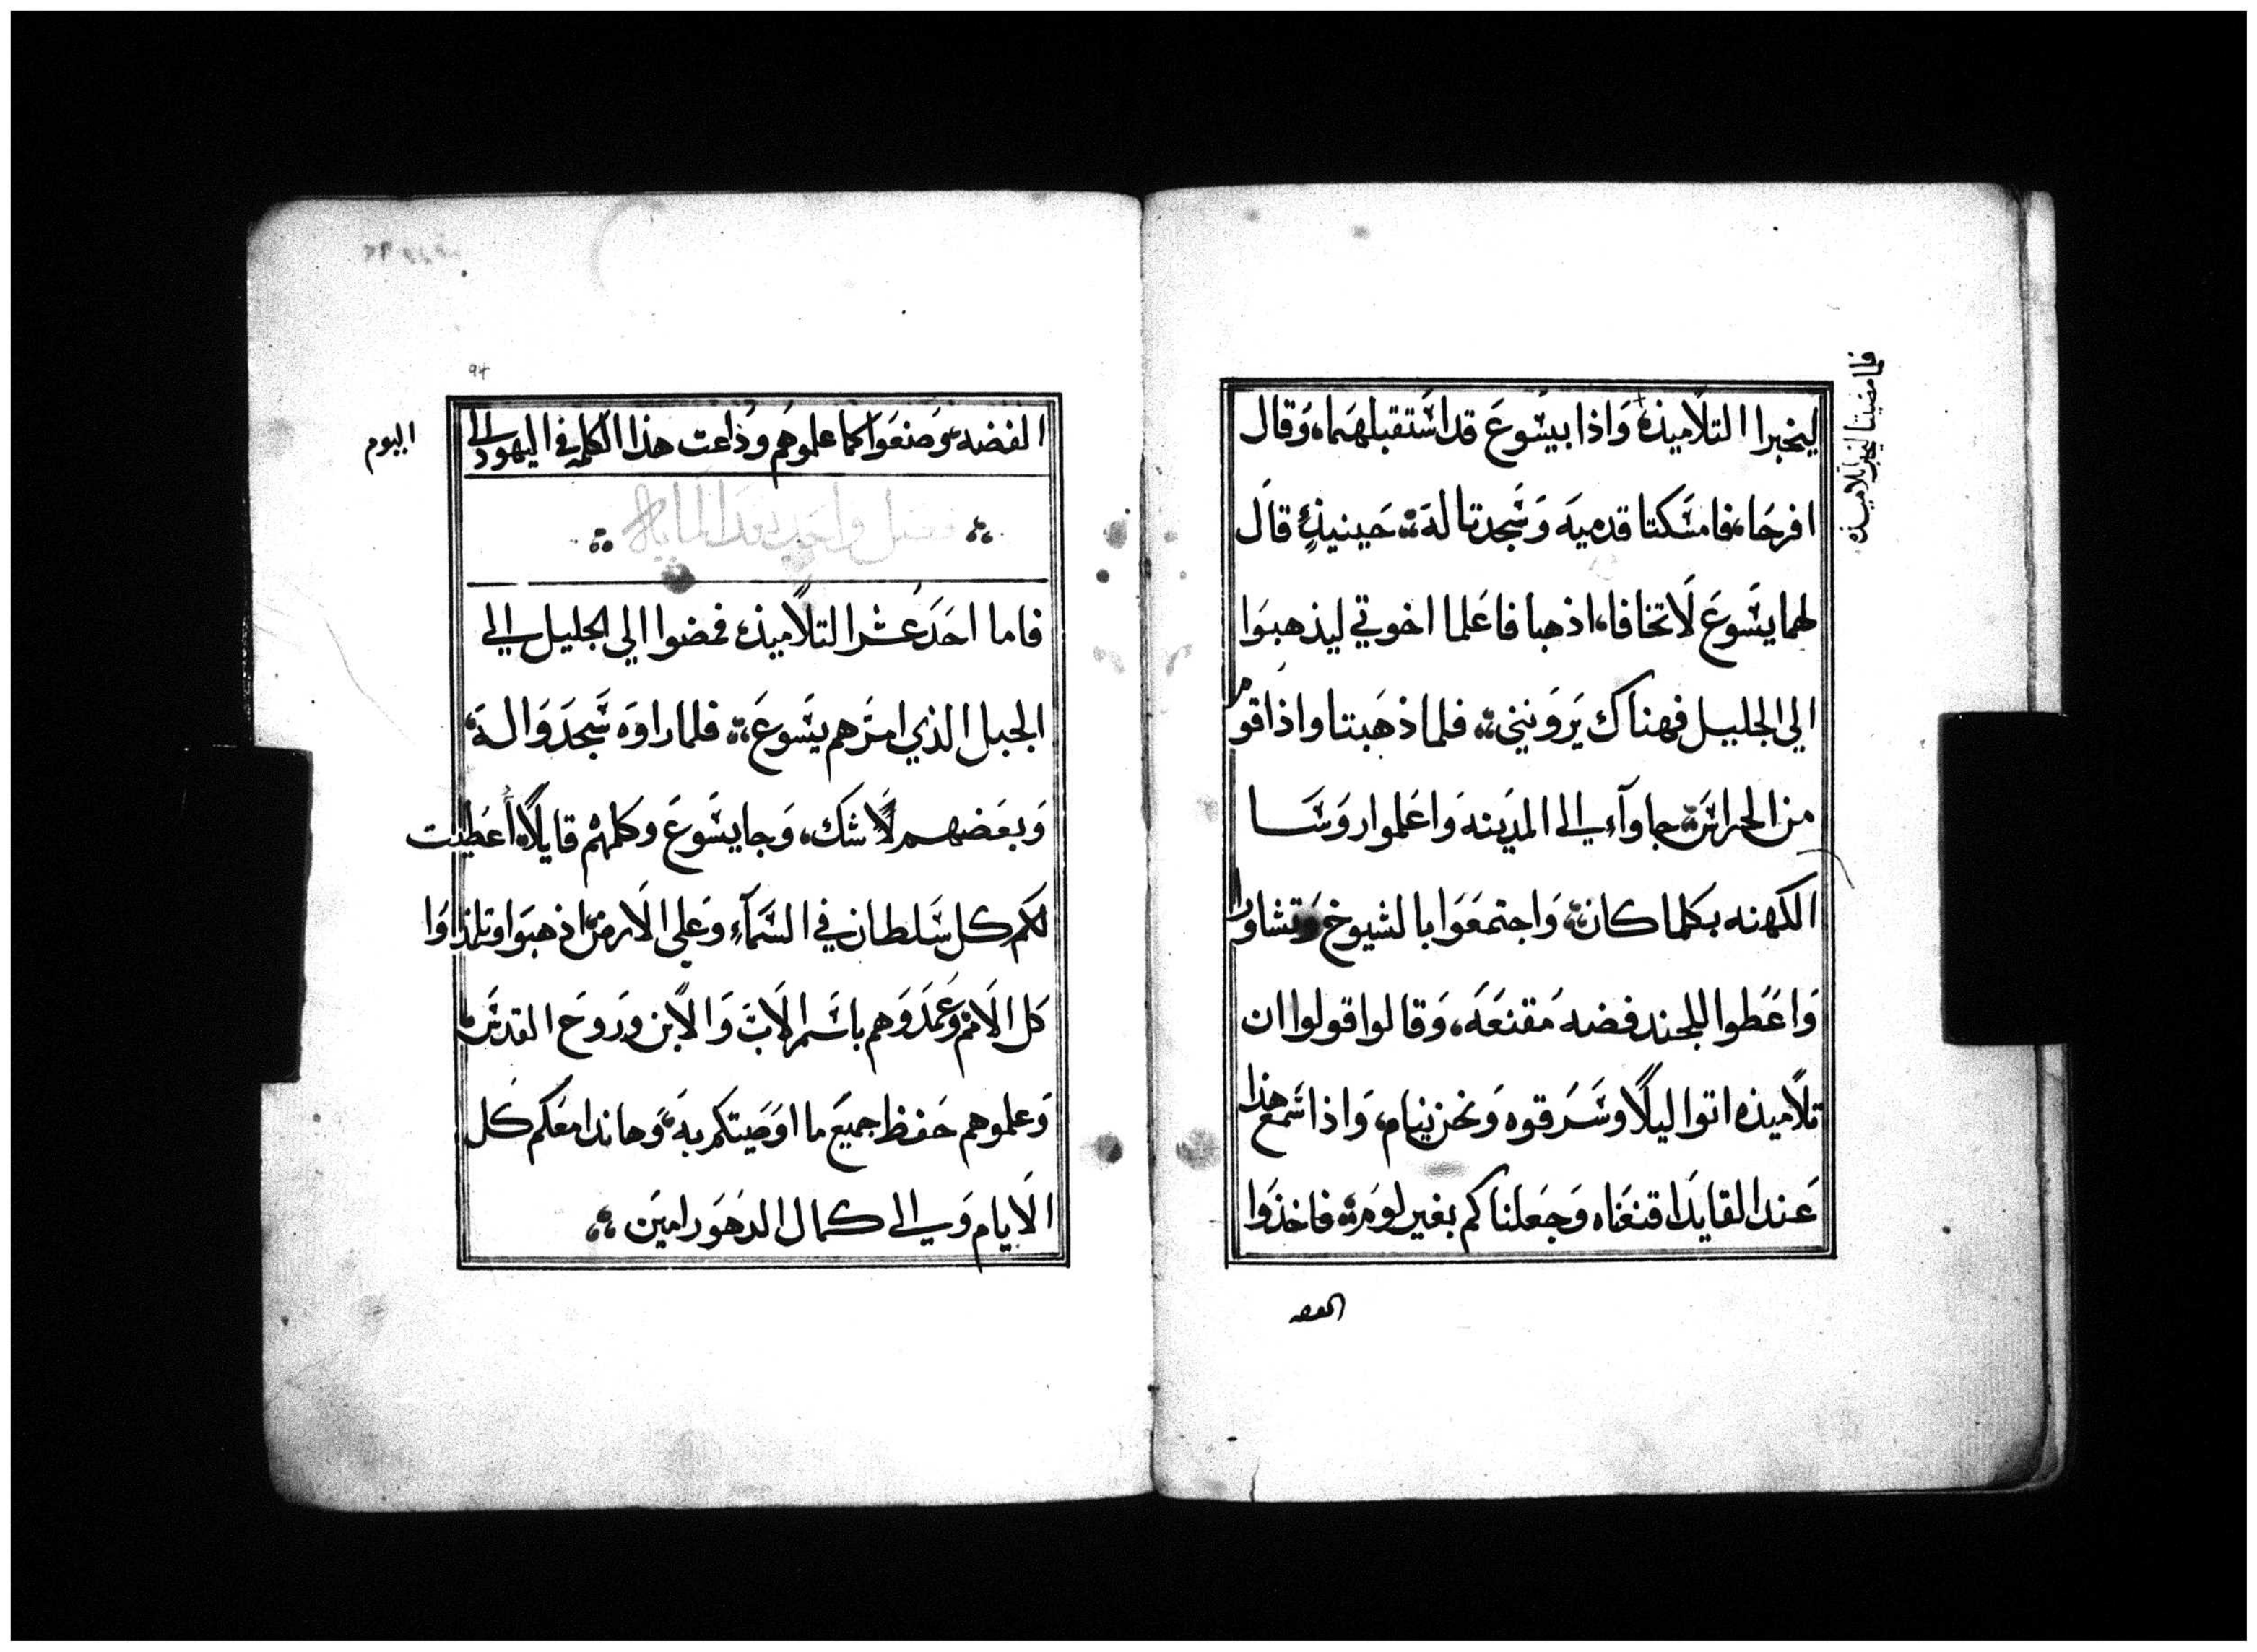 ليخبرا التلاميذه وَاذا بيسُوعَ قد استقبلهَما، وَقال
فلما مضيتا ليخبرا تلاميذه
افرحَا، فامسَكتا قدميهَ وَسَجدتا لهَ حَينيذٍ قالَ
لهما يسَوعَ لَاتخافا، اذهبا فاعَلما اخوتي ليذهبوَا
الي الجليل فهناك يَروَنني فلما ذهَبتا واذا قوم
من الحراسَ جاوآء الى المدَينه وَاعَلموا روسَا
الكهنه بكلما كان، وَاجتمعَوَا بالشيوخ وَتشاوروا
وَاعَطوا للجند فضه مُقنعَهَ، وَقالوا قولوا ان
تلَاميذه اتوا ليلًا وسَرقوه وَنحن نيام، وَاذا سَمع هذا
عَند القايدَ اقنعَناه وَجَعلناكم بغير لومَ فاخذوَا
الفضه
94
الفضه وَصنعَوَا كما علموهَم وذاعت هذا الكلمه في اليهود الى
اليوم
فصل واحد بعد المايه
فاما احَدَ عُشر التلَاميذ، فمضوا الي الجليل الى
الجبل الذي امرَهم يسَوعَ فلما راوَه سَجدَوَا لهَ
وَبعَضهم لًا شَك، وَجا يسَوعَ وكلمهُم قايلًا، أُعَطيت
لكم كل سَلطان في السَمآءِ وَعَلى الَارض، اذهبوَا وتلمذوَا
كَل الَامم وَعَمدَوَهم باسَم الَاب وَالَابن وَرَوحَ القدسَ
وَعلموهم حَفظ جميَع ما اوَصَيتكم بهَ، وَها نذا معَكم كَل
الَايام وَالى كمال الدهَوَر امينَ